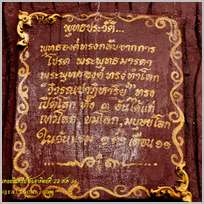 พุทธประวัติ...
พุทธองค์ทรงกลับจากการ
โปรด พระพุทธมารดา
พระพุทธองค์ ทรงทำโลก
วิวรณปาฏิหาริย์ ทรง
เปิดโลก ทั้ง ๓ อันได้แก่
เทวโลก ยมโลก มนุษย์โลก
ในวันแรม ๑ ค่ำ เดือน ๑๑